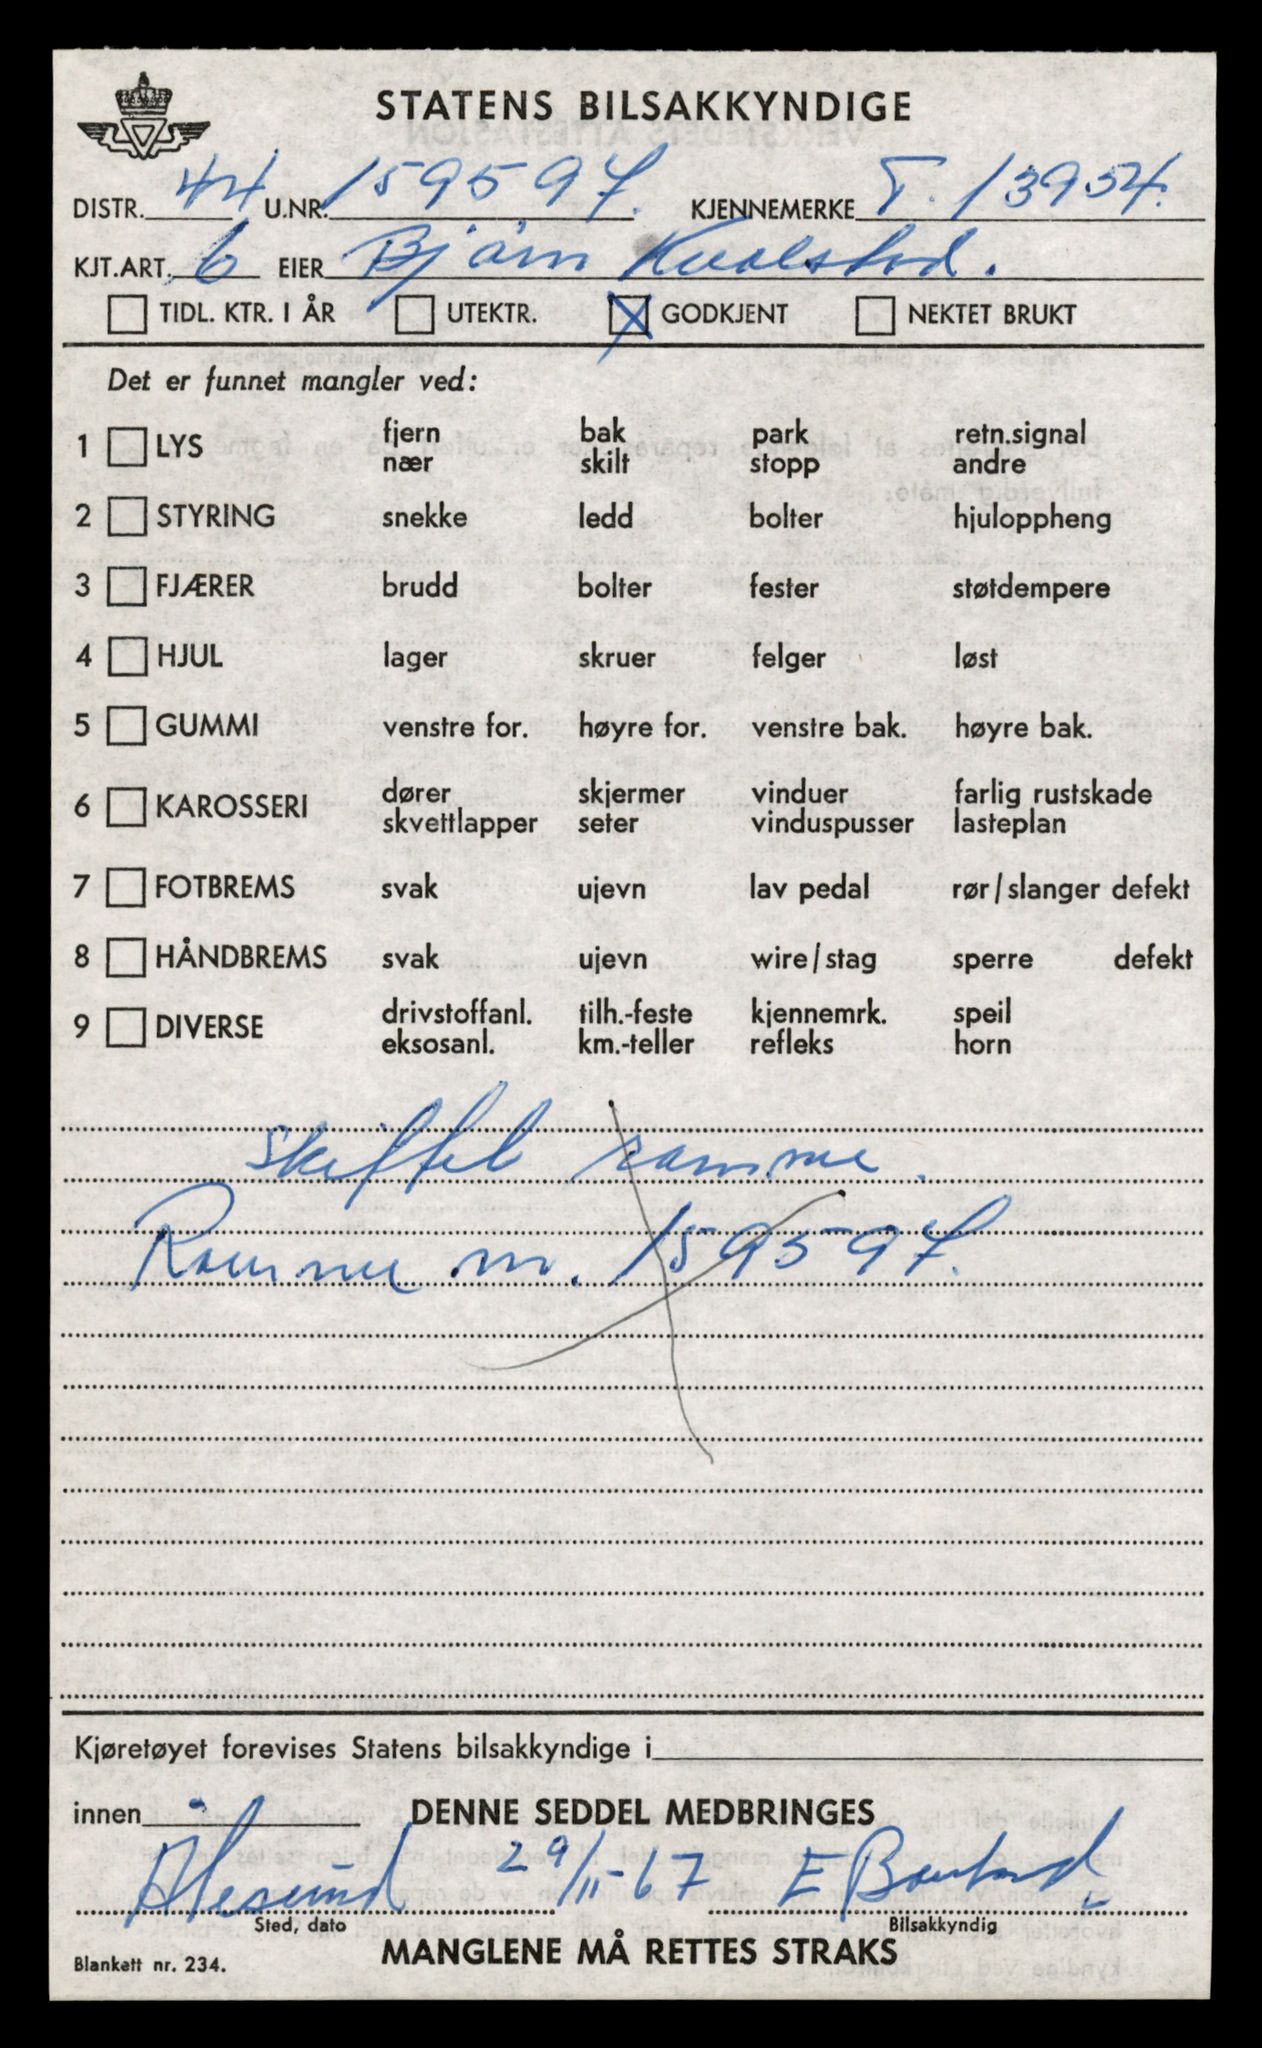 STATENS BILSAKKYNDIGE
DISTR. 44 U.NR. 159597. KJENNEMERKE T. 13954.
KJT.ART. 6 EIER Bjørn Kvalstad.
TIDL. KTR. I ÅR UTEKTR. GODKJENT NEKTET BRUKT
Det er funnet mangler ved:
1 LYS fjern bak park retn.signal
nær skilt stopp andre
2 STYRING snekke ledd bolter hjuloppheng
3 FJÆRER brudd bolter fester støtdempere
4 HJUL lager skruer felger løst
5 GUMMI venstre for. høyre for. venstre bak. høyre bak.
6 KAROSSERI dører skjermer vinduer farlig rustskade
skvettlapper seter vinduspusser lasteplan
7 FOTBREMS svak ujevn lav pedal rør/slanger defekt
8 HÅNDBREMS svak ujevn wire/stag sperre defekt
9 DIVERSE drivstoffanl. tilh.-feste kjennemrk. speil
eksosanl. km.-teller refleks horn
skiftet ramme.
Ramme nr. 159597.
Kjøretøyet forevises Statens bilsakkyndige i
innen DENNE SEDDEL MEDBRINGES
Ålesund 29/11-67 E
Sted, dato Bilsakkyndig
Blankett nr. 234. MANGLENE MÅ RETTES STRAKS